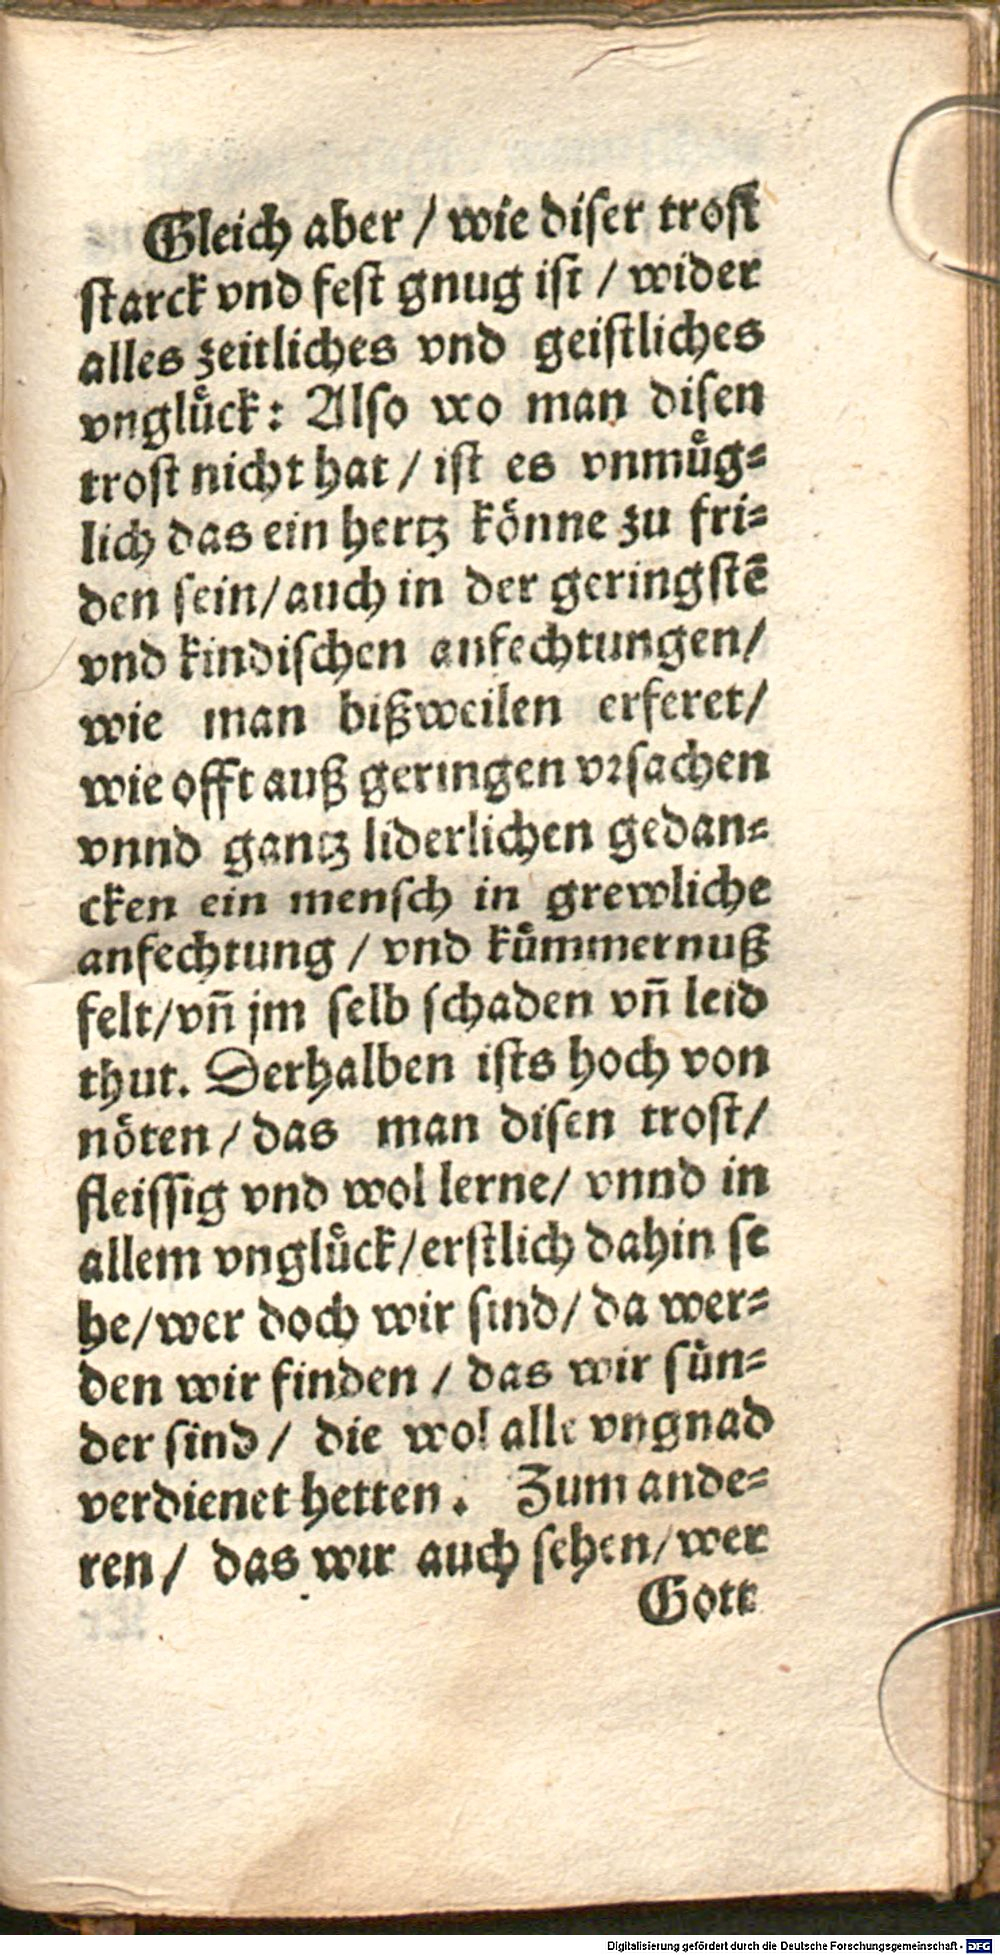 Gleich aber / wie diser trost
starck vnd fest gnug ist / wider
alles zeitliches vnd geistliches
vnglück: Also wo man disen
trost nicht hat / ist es vnmüg=
lich das ein hertz könne zu fri=
den sein/auch in der geringstē
vnd kindischen anfechtungen/
wie man bißweilen erferet/
wie offt auß geringen vrsachen
vnnd gantz liderlichen gedan=
cken ein mensch in grewliche
anfechtung / vnd kümmernuß
felt/vñ jm selb schaden vñ leid
thut. Derhalben ists hoch von
nöten / das man disen trost/
fleissig vnd wol lerne/ vnnd in
allem vnglück/erstlich dahin se
he/wer doch wir sind/ da wer=
den wir finden / das wir sün=
der sind/ die wol alle vngnad
verdienet hetten. Zum ande=
ren/ das wir auch sehen/wer
Gott
Digitalisierung gefördert durch die Deutsche Forschungsgemeinschaft - DFG